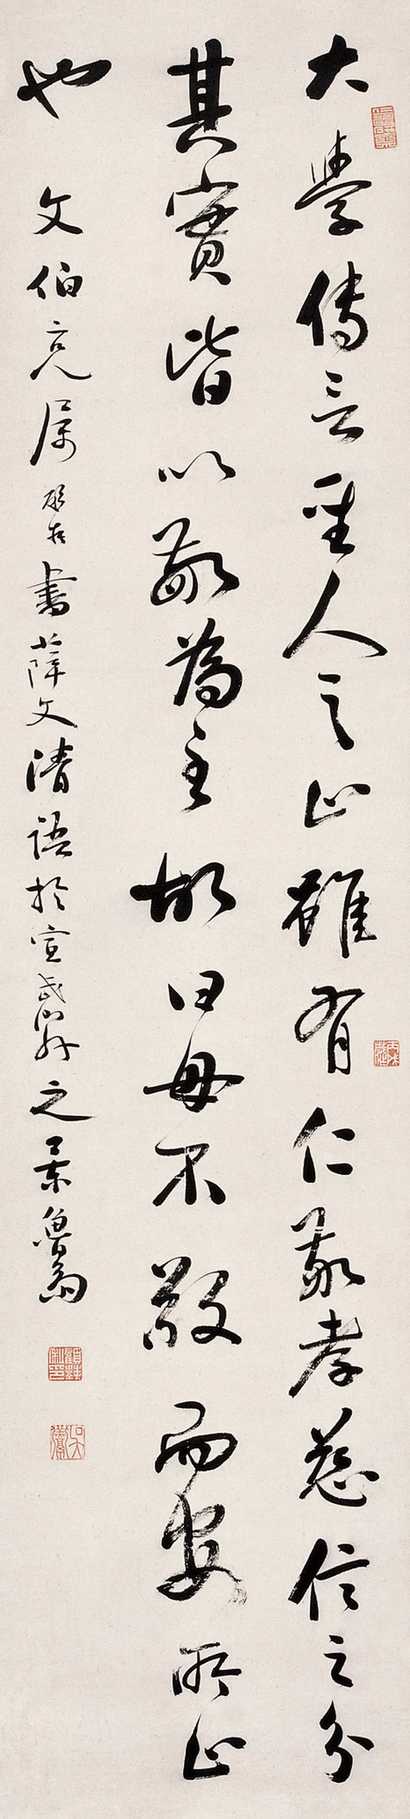 大學傳言聖人之止雖有仁敬孝慈信之分
其實皆以敬為主故曰毋不敬而安所止
也 文伯兄屬 書薛文清語於宣武門外之景魯